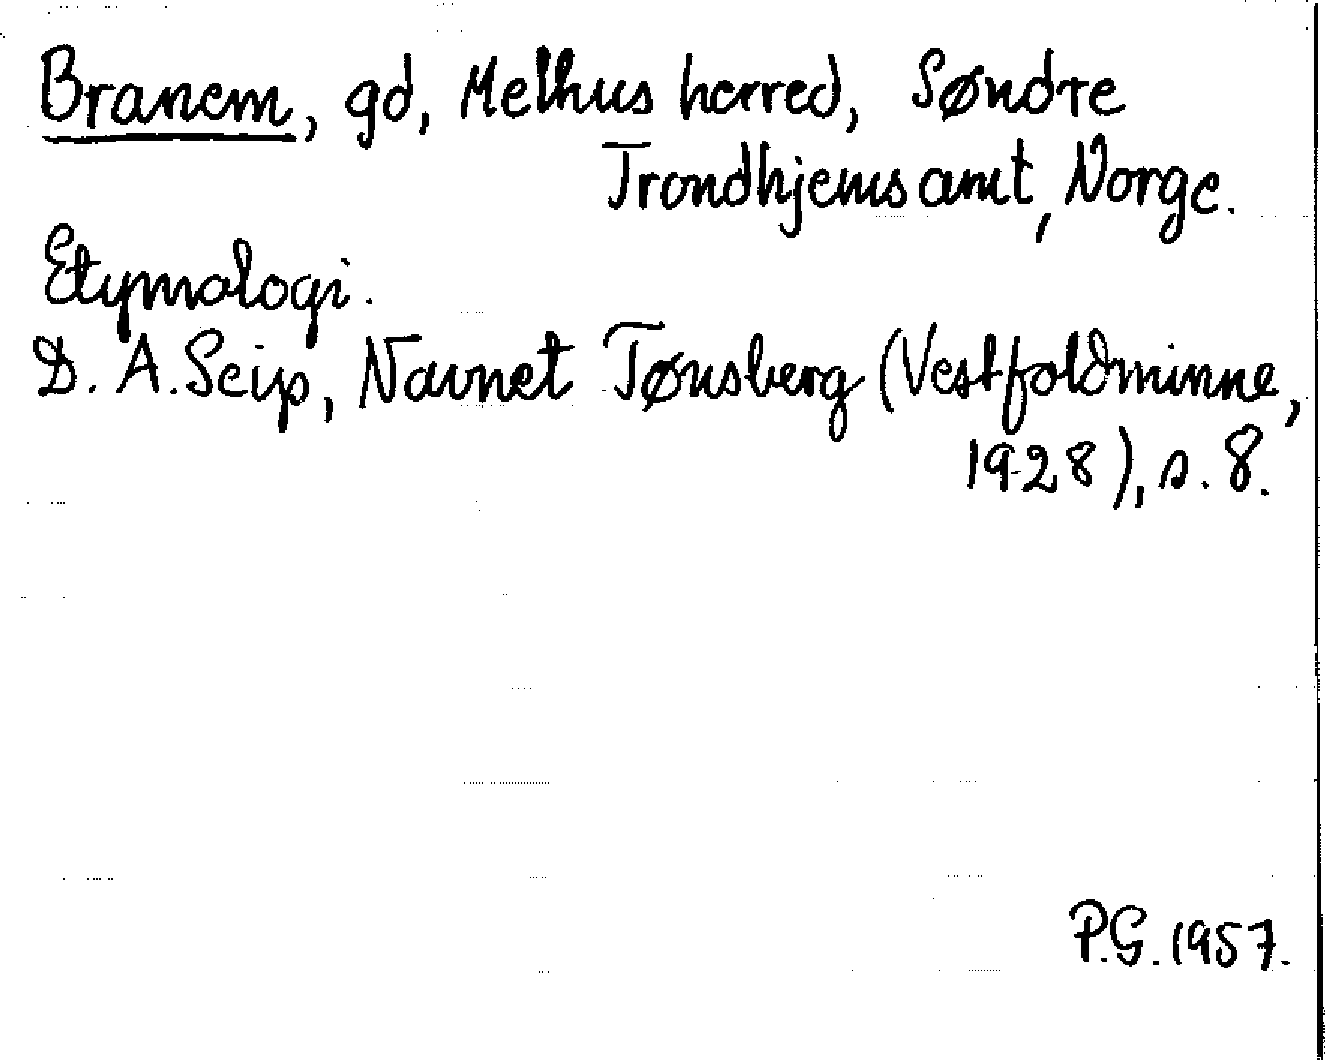 Branem, gd, Melhus herred, Søndre
Trondhjems amt, Norge.
Etymologi.
D. A. Seip, Navnet Tønsberg (Vestfoldminne,
1928), s. 8.
P.G. 1957.